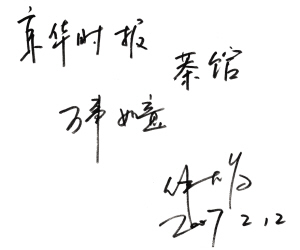 京华时报 茶馆
万事如意
2007 2.12